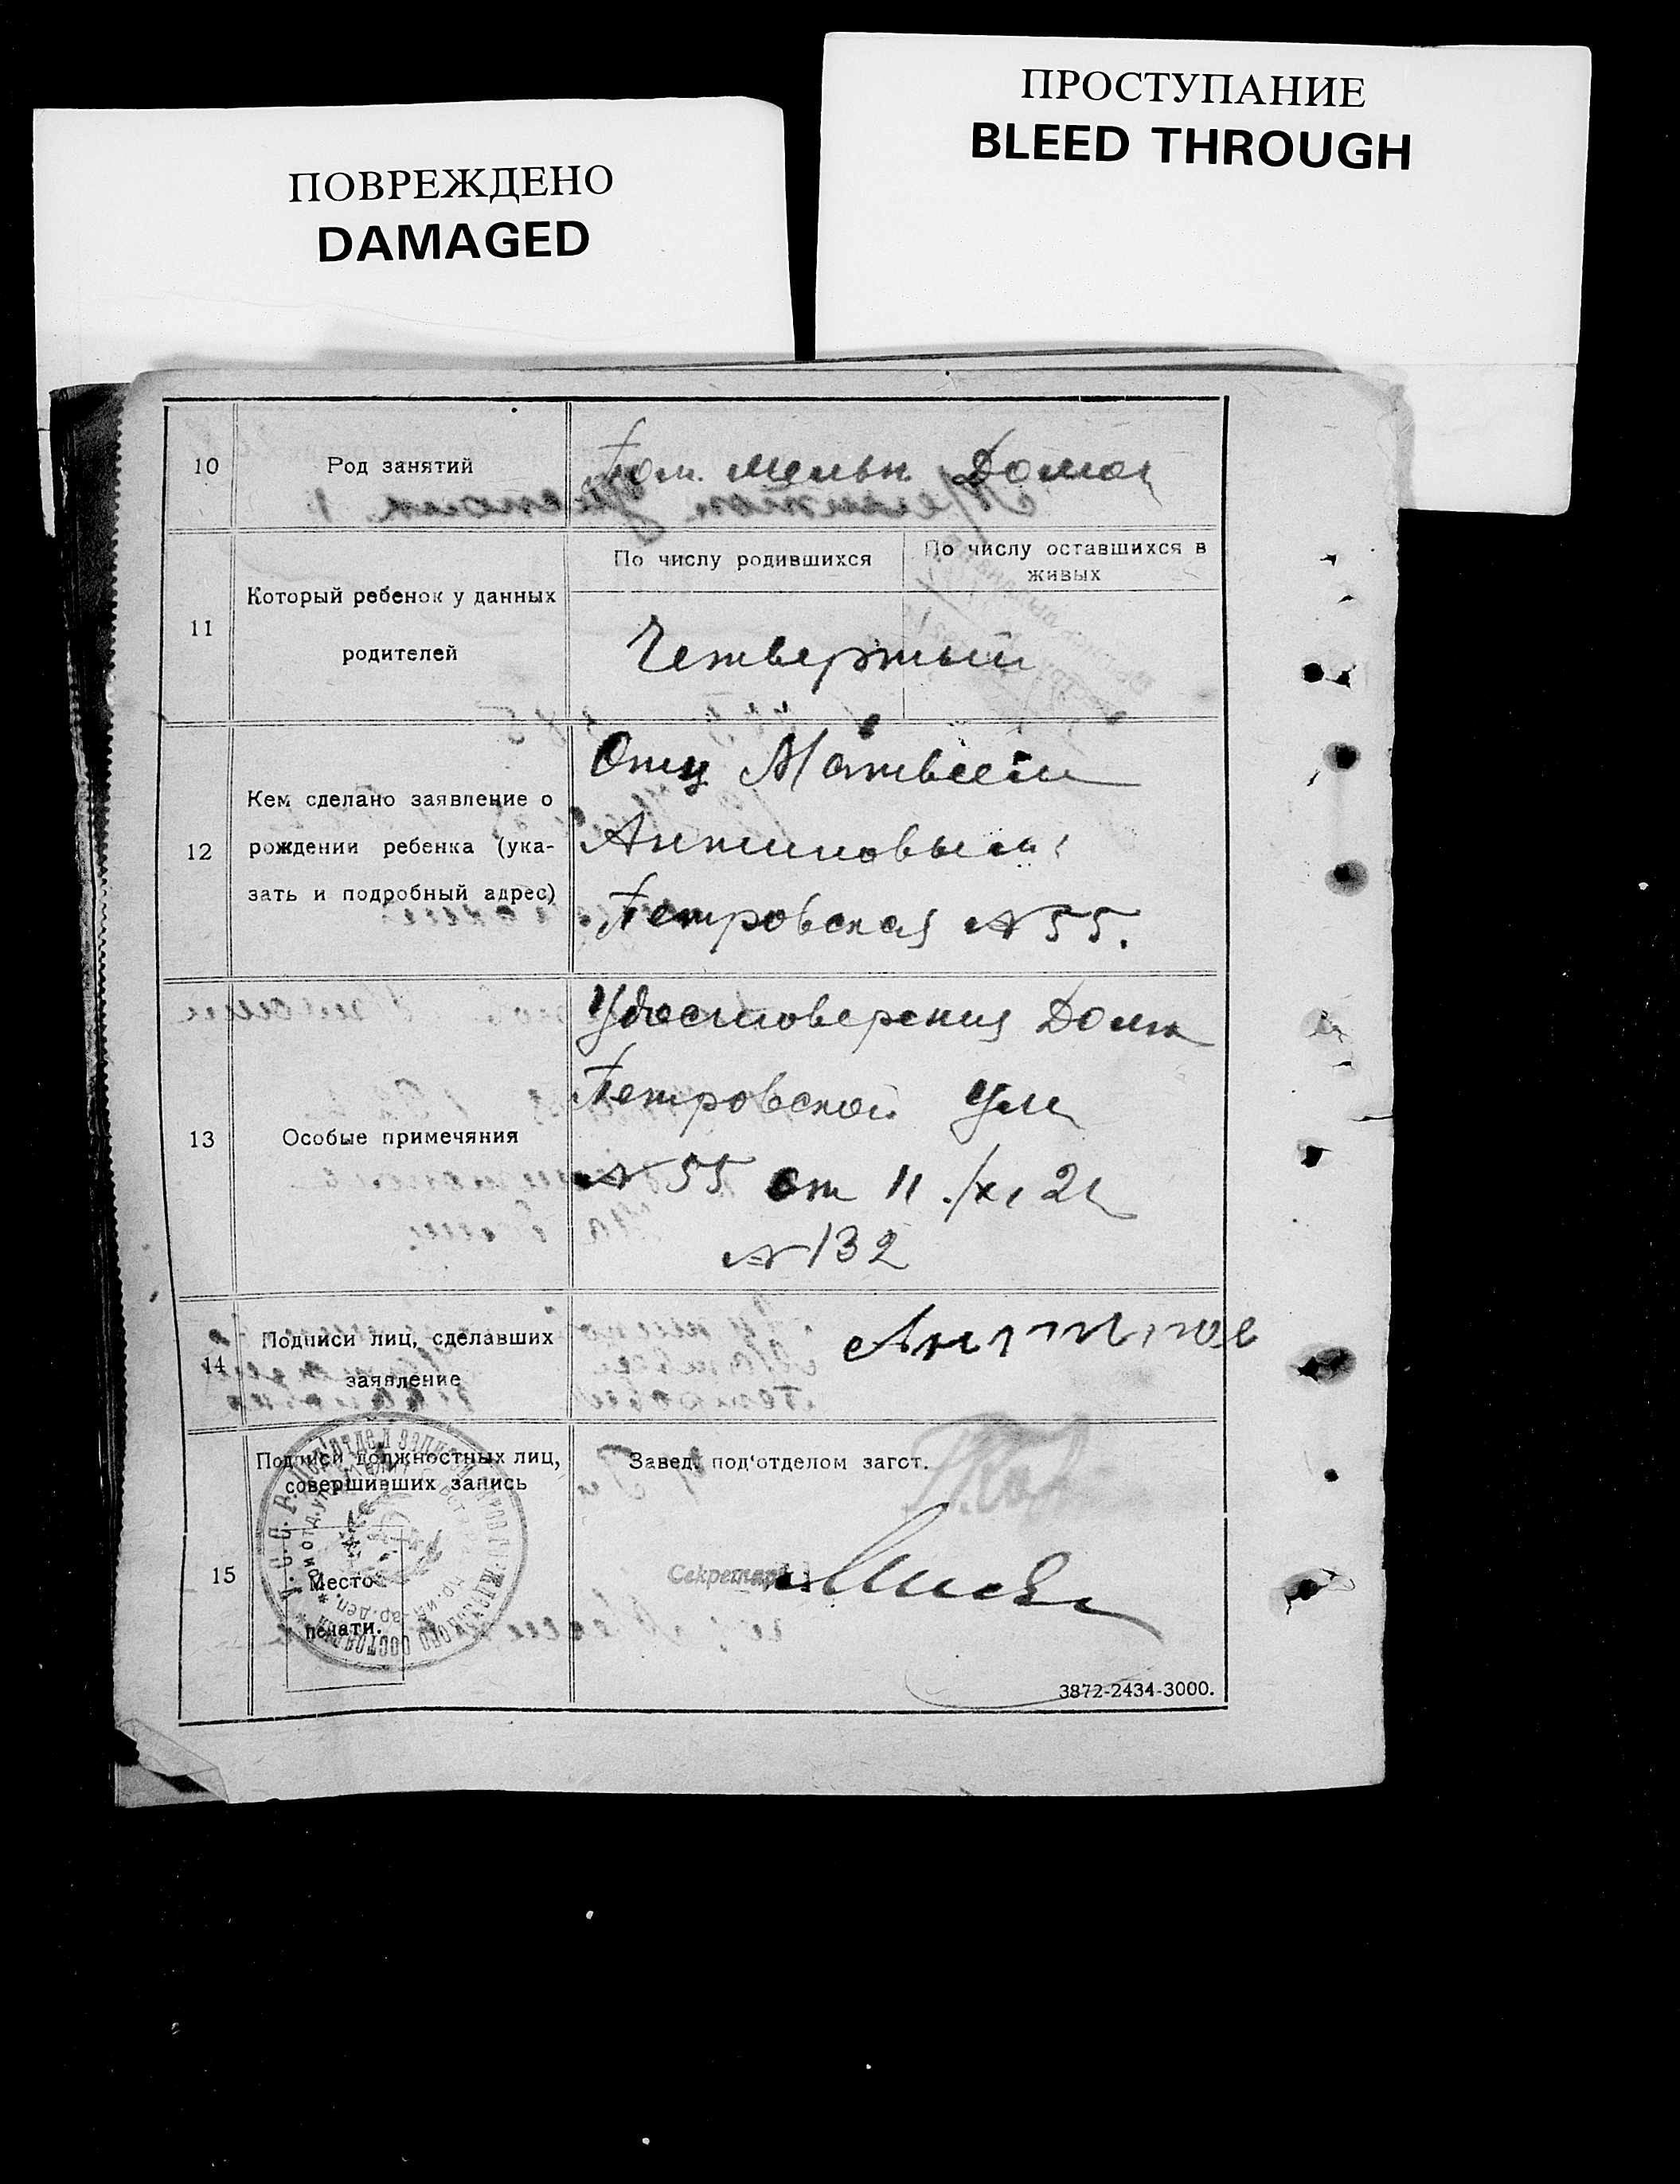 ПОВРЕЖДЕНО
DAMAGED
ПРОСТУПАНИЕ
BLEED THROUGH
10
Род занятий
Пом. мельн. Домох
11
Который ребенок у данных
родителей
По числу родившихся
По числу оставшихся в
живых
Четвертый
12
Кем сделано заявление о
рождении ребенка (ука-
зать и подробный адрес)
Отц Матвеем
Антиповым
Петровская № 55.
13
Особые примечяния
Удостоверения Дом
Петровской Ул
№ 55 от 11./XI 21
№ 132
14
Подписи лиц, сделавших
заявление
Антипов
15
Подписи должностных лиц,
совершивших запись
Место
печати.
Завед. под'отделом загст.
Секретарь
3872-2434-3000.